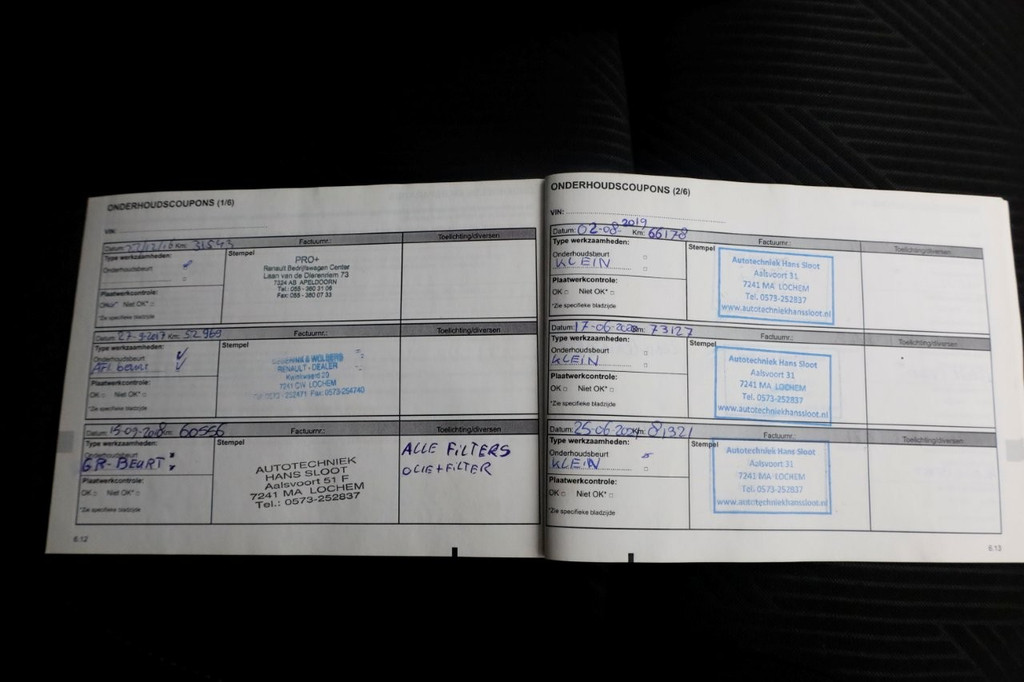 ONDERHOUDSCOUPONS (1/6)
VIN:
Datum: 22/12/16 Km: 31543 Factuurnr.: Toelichting/diversen
Type werkzaamheden: Stempel
Onderhoudsbeurt
Plaatwerkcontrole:
OK Niet OK*
*Zie specifieke bladzijde
PRO+
Renault Bedrijfswagen Center
Laan van de Dierenriem 73
7324 AB APELDOORN
Tel.: 055 - 360 31 06
Fax: 055 - 360 07 33
Datum: 27-9-2017 Km: 52969 Factuurnr.: Toelichting/diversen
Type werkzaamheden: Stempel
Onderhoudsbeurt
beurt
Plaatwerkcontrole:
OK Niet OK*
*Zie specifieke bladzijde
& WOLBERS
RENAULT - DEALER
7241 CW LOCHEM
0573-252871 Fax: 0573-254740
Datum: 15-09-2018 Km: 60556 Factuurnr.: Toelichting/diversen
Type werkzaamheden: Stempel
Onderhoudsbeurt
GR-BEURT
Plaatwerkcontrole:
OK Niet OK*
*Zie specifieke bladzijde
AUTOTECHNIEK
HANS SLOOT
Aalsvoort 51 F
7241 MA LOCHEM
Tel.: 0573-252837
ALLE FILTERS
OLIE+FILTER
6.12
ONDERHOUDSCOUPONS (2/6)
VIN:
Datum: 02-08-2019 Km: 66178 Factuurnr.: Toelichting/diversen
Type werkzaamheden: Stempel
Onderhoudsbeurt
KLEIN
Plaatwerkcontrole:
OK Niet OK*
*Zie specifieke bladzijde
Autotechniek Hans Sloot
Aalsvoort 31
7241 MA LOCHEM
Tel. 0573-252837
www.autotechniekhanssloot.nl
Datum: 17-06-2020 Km: 73127 Factuurnr.: Toelichting/diversen
Type werkzaamheden: Stempel
Onderhoudsbeurt
KLEIN
Plaatwerkcontrole:
OK Niet OK*
*Zie specifieke bladzijde
Autotechniek Hans Sloot
Aalsvoort 31
7241 MA LOCHEM
Tel. 0573-252837
www.autotechniekhanssloot.nl
Datum: Km: 81321 Factuurnr.: Toelichting/diversen
Type werkzaamheden: Stempel
Onderhoudsbeurt
KLEIN
Plaatwerkcontrole:
OK Niet OK*
*Zie specifieke bladzijde
Autotechniek Hans Sloot
Aalsvoort 31
7241 MA LOCHEM
Tel. 0573-252837
www.autotechniekhanssloot.nl
6.13